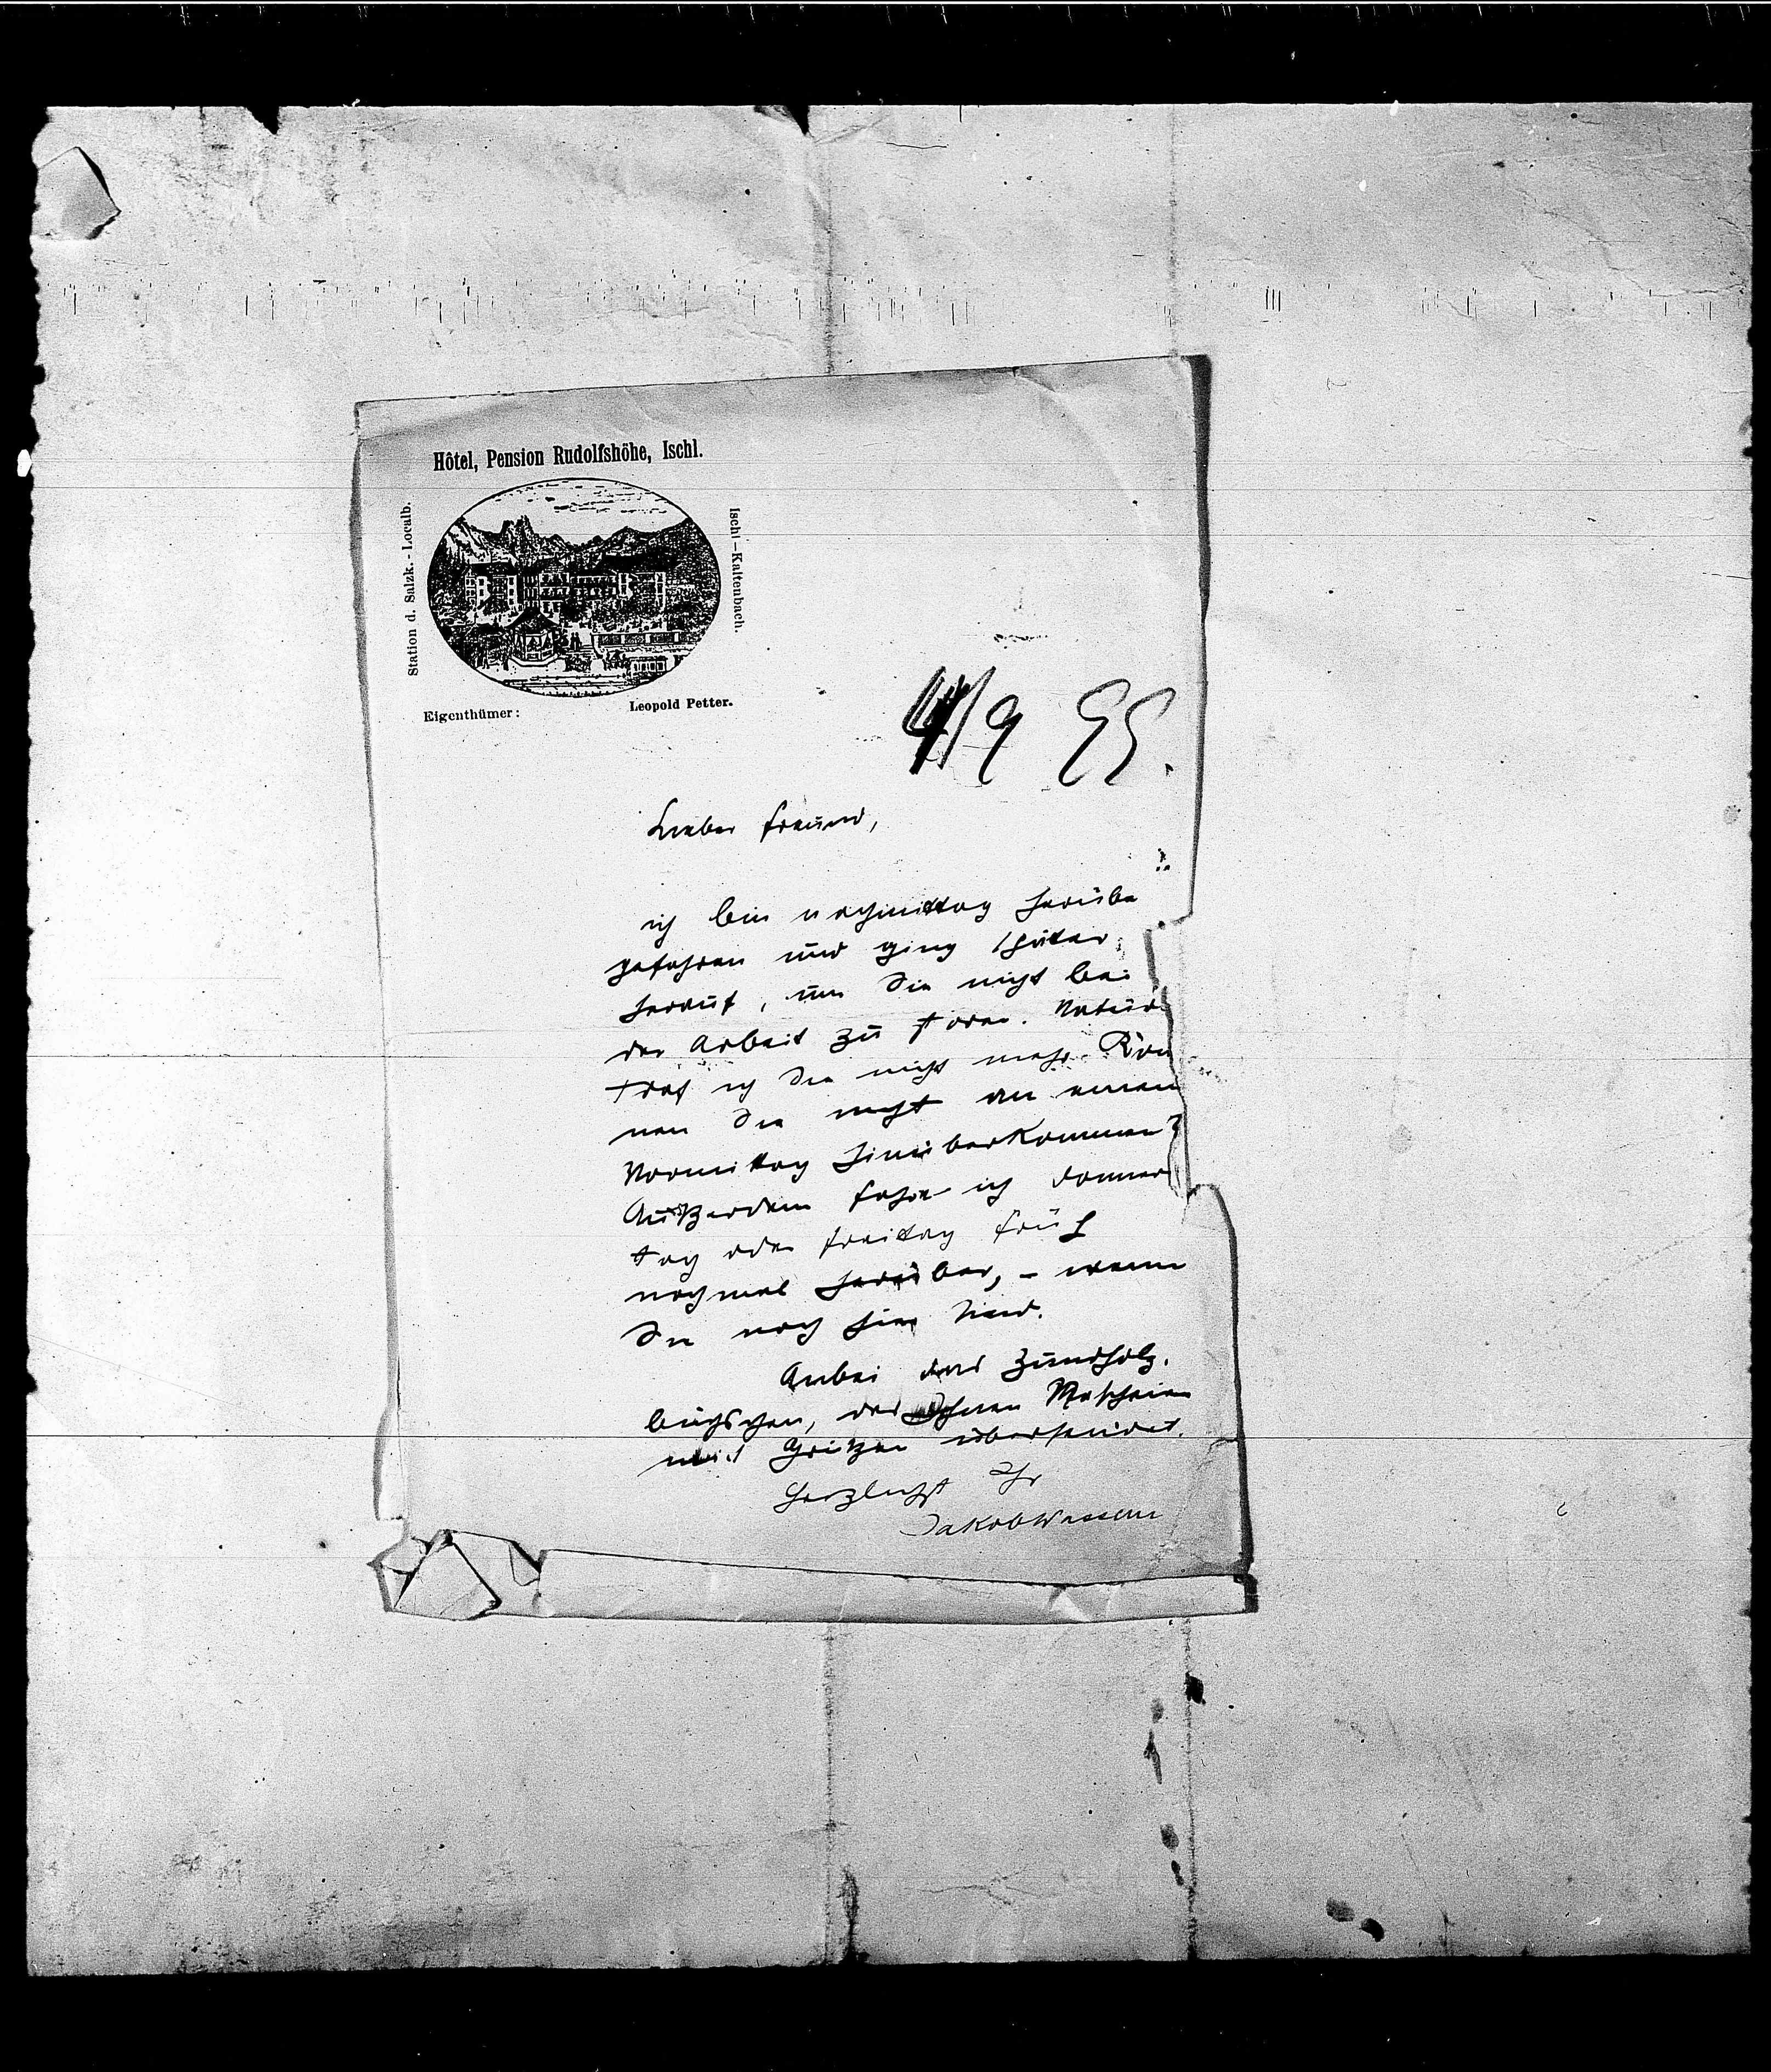 Hôtel, Pension Rudolfshöhe, Ischl.
Station d. Salzk.-Localb.
Ischl–Kaltenbach.
Eigenthümer: Leopold Petter.
4/9 99.
Lieber Freund,
ich bin nachmittag herüber
gefahren und ging später
herauf, um Sie nicht bei
der Arbeit zu stören. Natürl
traf ich Sie nicht mehr. Kön
nen Sie nicht an einem
Vormittag hinüberkommen?
Außerdem fahre ich Donners
tag oder Freitag früh
nochmal herüber, – wenn
Sie noch hier sind.
Anbei das Zündholz-
büchschen, das Ihnen
mit Grüßen übersendet.
Herzlichst Ihr
Jakob Wasserm